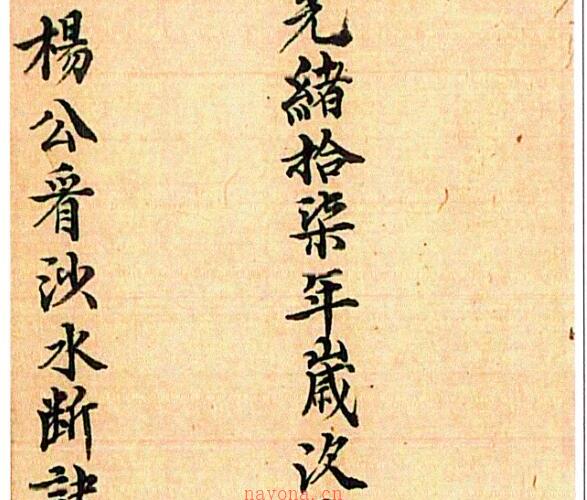 光緒拾柒年歲次
楊公看沙水断訣
nayona.cn